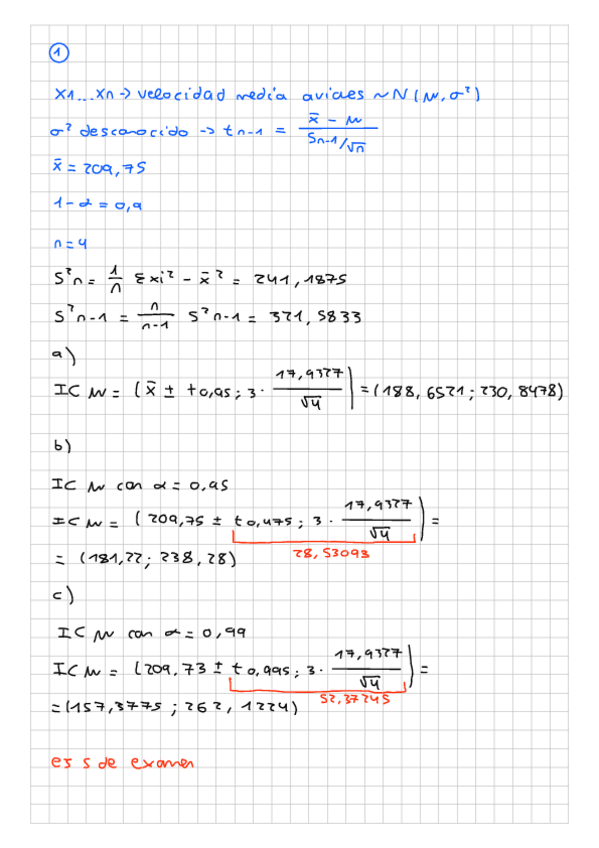 1
X1...Xn → velocidad media aviones ~ N(μ, σ²)
σ² desconocido → t n-1 = x̄ - μ / Sn-1/√n
x̄ = 209,75
1-α = 0,9
n = 4
S²n = 1/n Σxi² - x̄² = 241,1875
S²n-1 = n/n-1 S²n-1 = 321,5833
a)
IC μ = (x̄ ± t0,95; 3 · 17,9327/√4) = (188,6521; 230,8478)
b)
IC μ con α = 0,95
IC μ = (209,75 ± t0,475; 3 · 17,9327/√4) =
28,53093
= (181,22; 238,28)
c)
IC μ con α = 0,99
IC μ = (209,73 ± t0,995; 3 · 17,9327/√4) =
52,37245
= (157,3775; 262,1224)
es s de examen